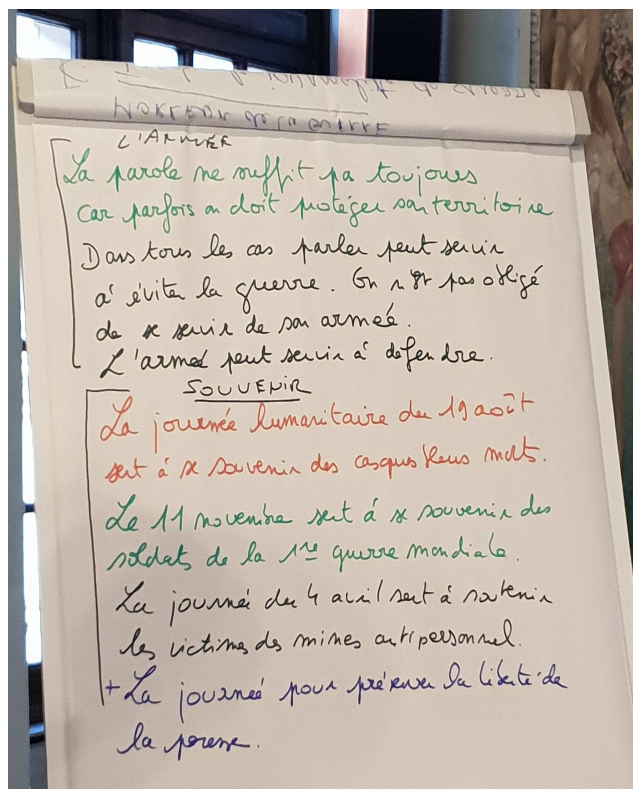 L'ARMÉE
La parole ne suffit pa toujours
car parfois on doit protéger son territoire
Dans tous les cas parler peut servir
à éviter la guerre. On n'est pas obligé
de se servir de son armée.
L'armée peut servir à défendre.
SOUVENIR
La journée humanitaire du 19 août
sert à se souvenir des casques bleus morts.
Le 11 novembre sert à se souvenir des
soldats de la 1re guerre mondiale.
La journée du 4 avril sert à soutenir
les victimes des mines antipersonnel.
+ La journée pour préserver la liberté de
la presse.